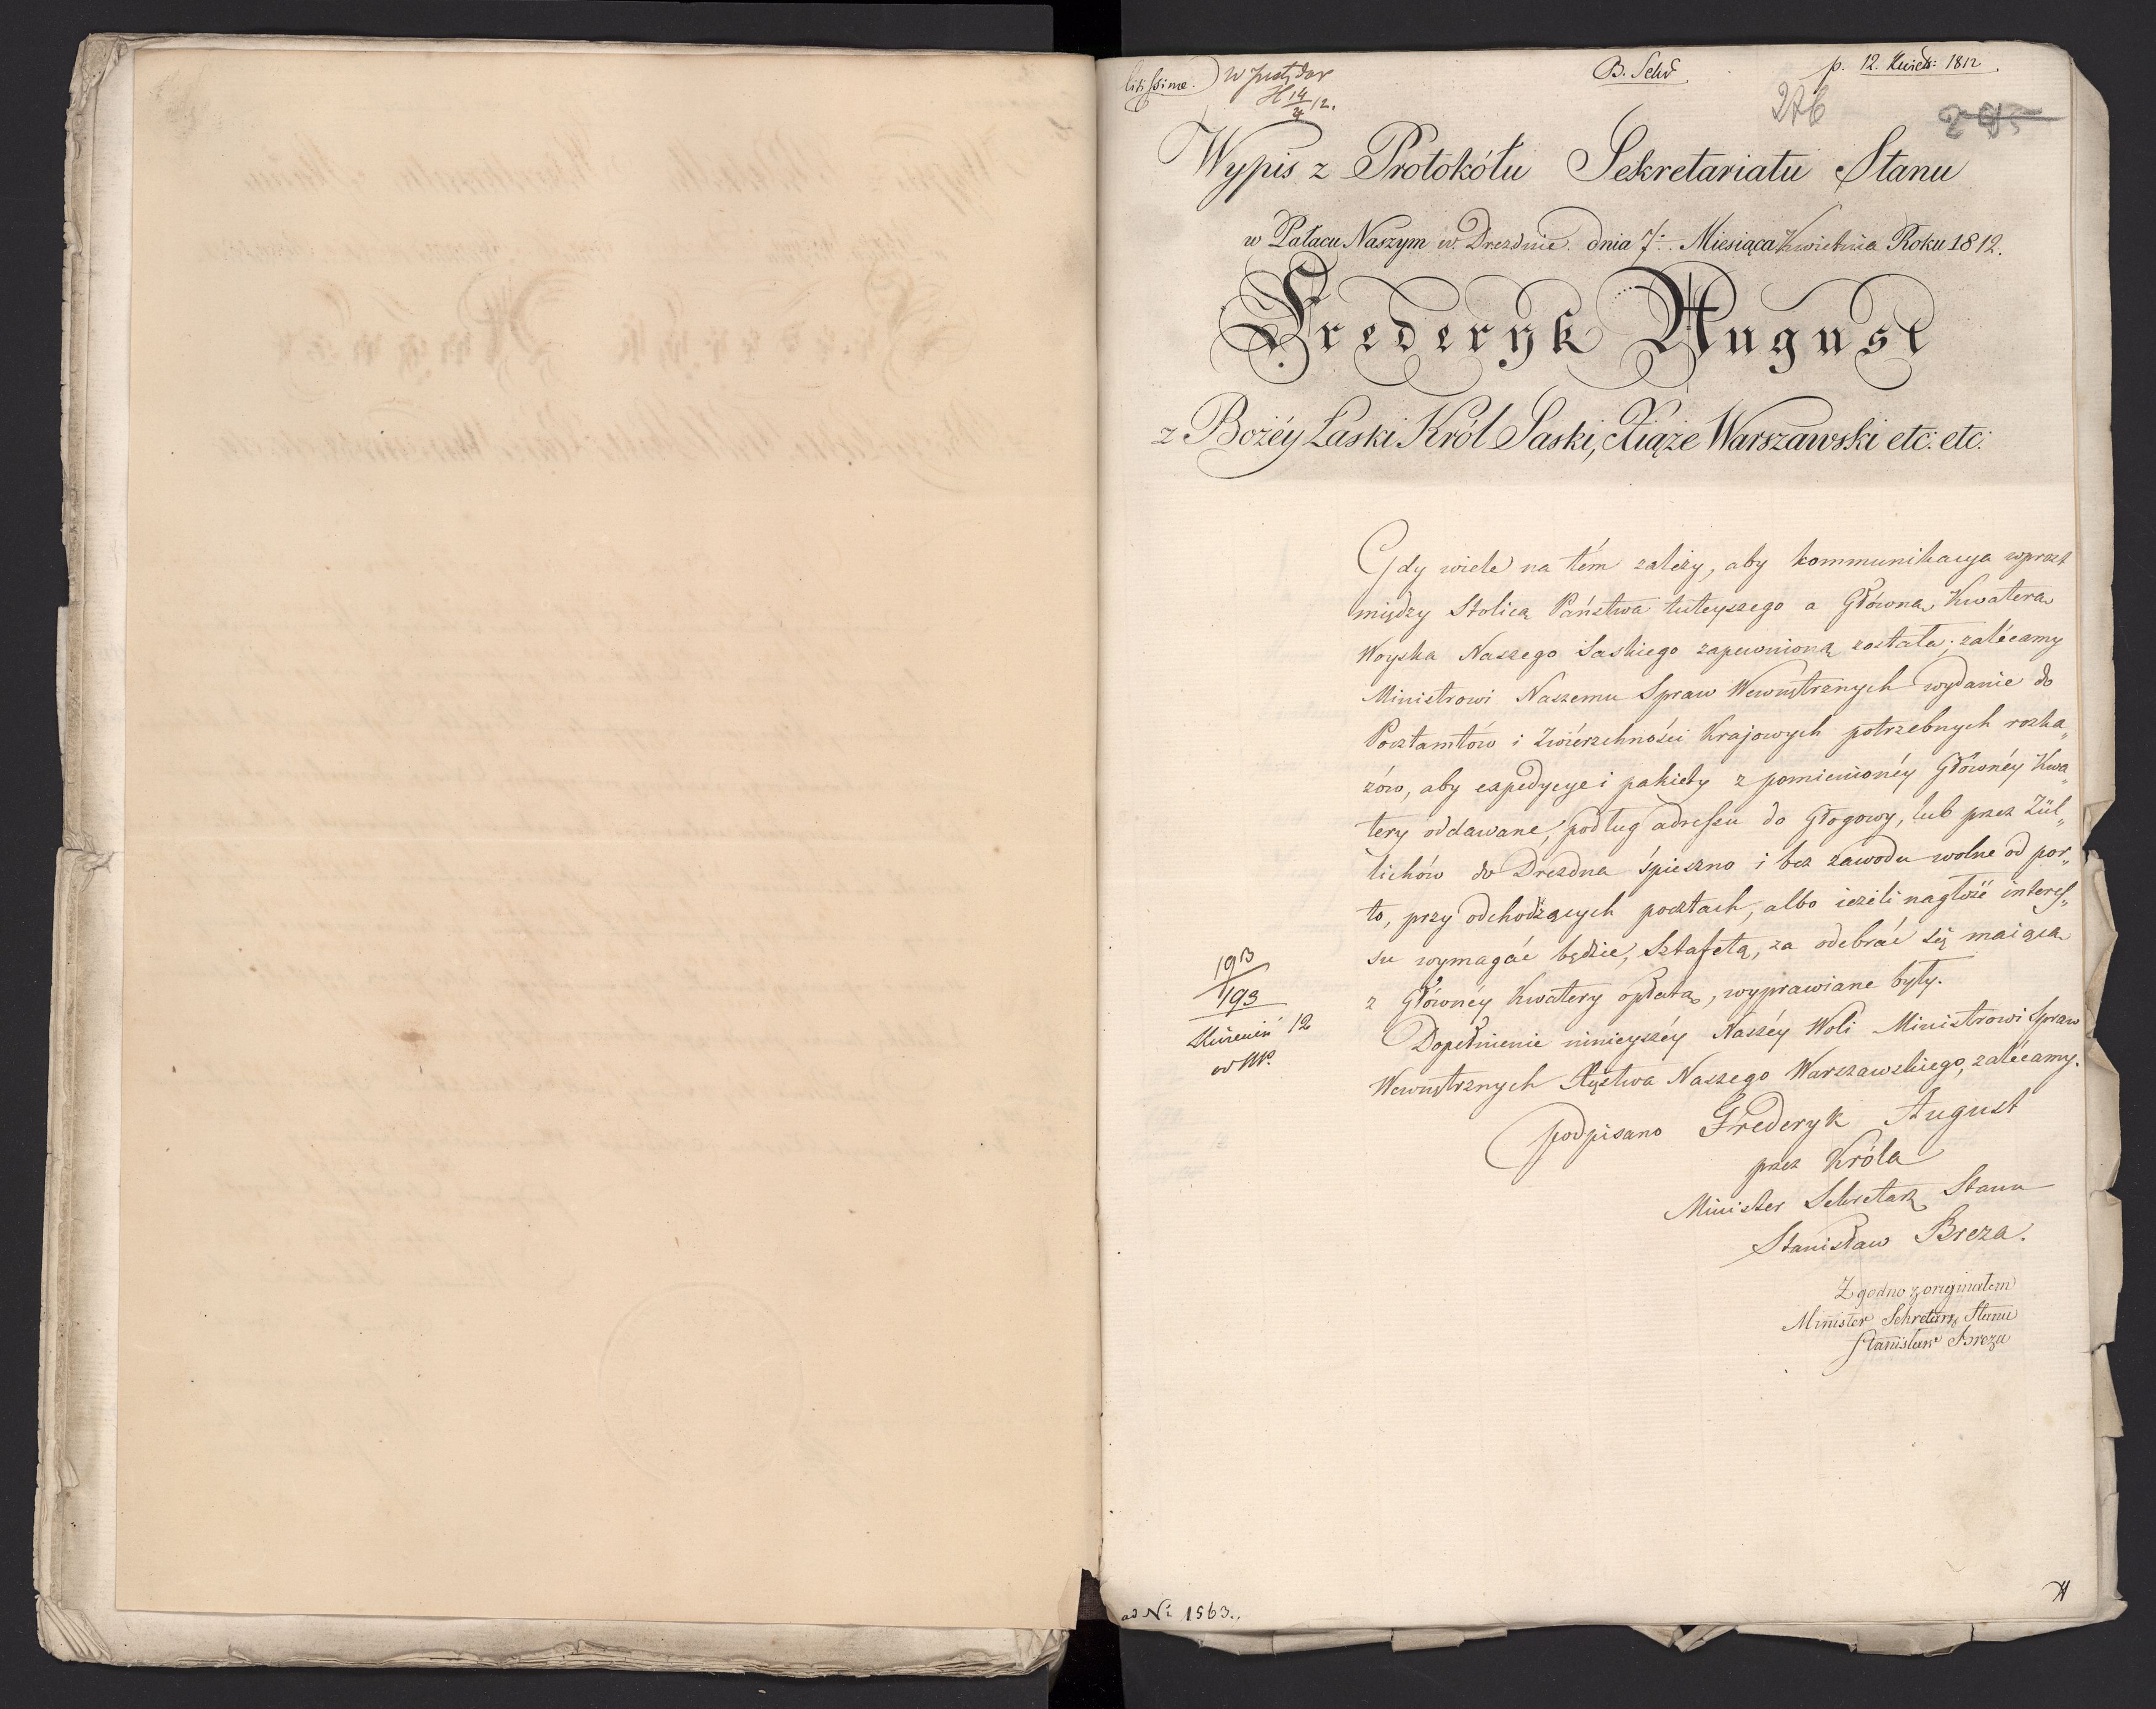 litissime.
14/4 12.
B. Sekr
p. 12. Kwiet: 1812.
276
275
Wypis z Protokółu Sekretariatu Stanu
w Pałacu Naszym w Dreznie dnia 7. Miesiąca Kwietnia Roku 1812.
Frederyk August
z Bożéy Łaski Król Saski, Xiąże Warszawski etc: etc:
Gdy wiele na tém zależy, aby kommunikacya wprost
między Stolicą Państwa tuteyszego a Główną Kwaterą
Woyska Naszego Saskiego zapewnioną została; zalécamy
Ministrowi Naszemu Spraw Wewnętrznych wydanie do
Pocztamtów i Zwierzchności Krajowych potrzebnych rozka„
zów, aby expedycye i pakiety z pomienionéy Głównéy Kwa„
tery oddawane, podług adressu do Głogowy, lub przez Zül„
lichów do Drezdna śpieszno i bez zawodu wolne od por„
to, przy odchodzących pocztach, albo ieżeli nagłość interes„
su wymagać będzie, Sztafetą, za odebrać się maiącą
z Głównéy Kwatery opłatą, wyprawiane były.
Dopełnienie ninieyszéy Naszéy Woli Ministrowi Spraw
Wewnętrznych Xięstwa Naszego Warszawskiego, zalécamy.
podpisano Frederyk August
przez Króla
Minister Sekretarz Stanu
Stanisław Breza.
Zgodno z oryginałem
Minister Sekretarz Stanu
Stanisław Breza
193
193
12
ad Nº 1563.